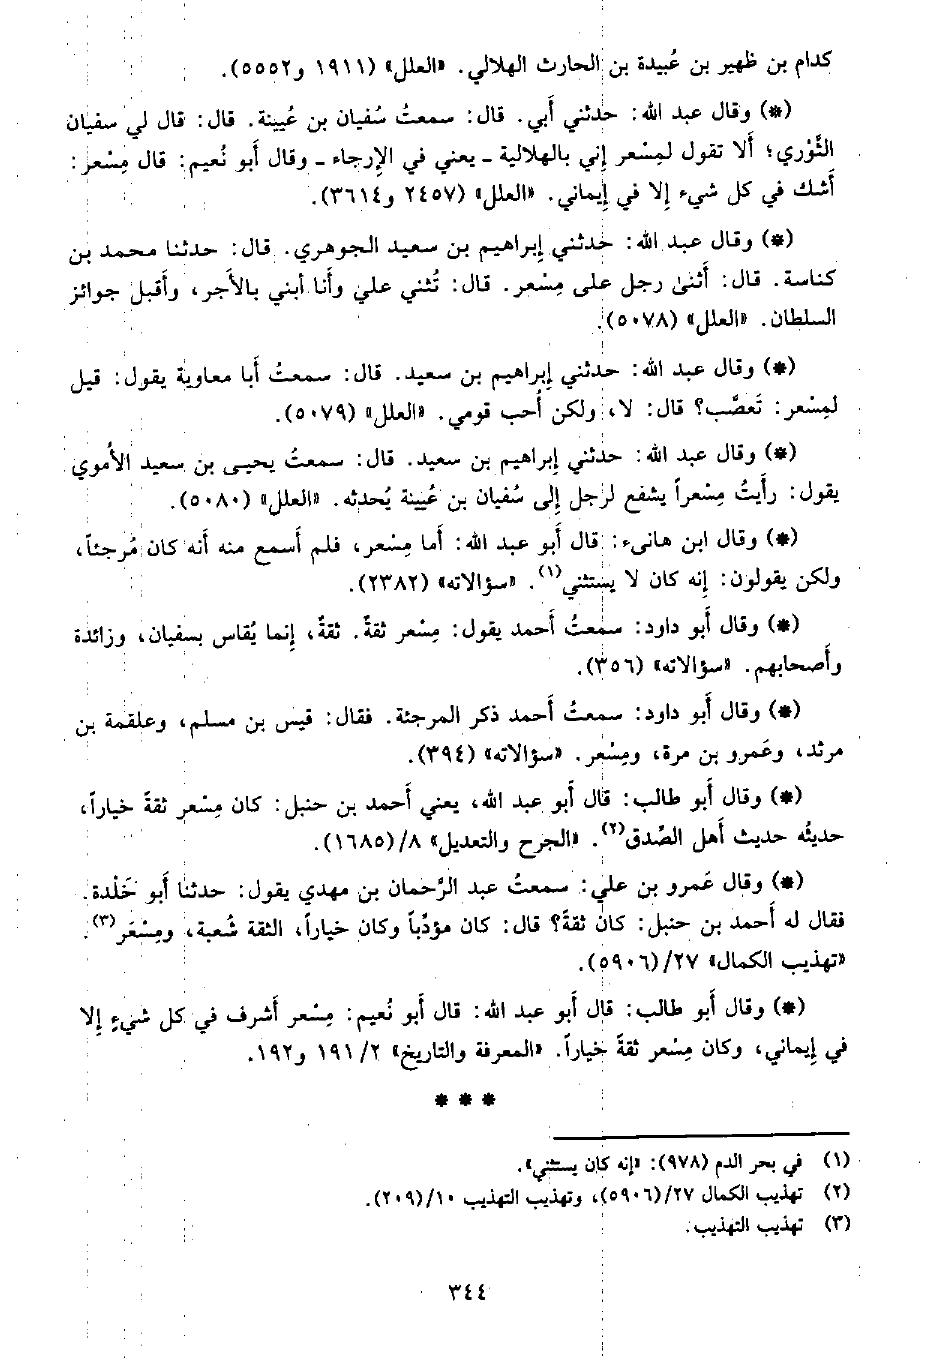 كدام بن ظهير بن عُبيدة بن الحارث الهلالي. «العلل» (١٩١١ و٥٥٥٢).
(*) وقال عبد الله: حدثني أَبي. قال: سمعتُ سُفيان بن عُيينة. قال: قال لي سفيان
الثَّوْري؛ أَلا تقول لمِسْعر إِني بالهلالية ـ يعني في الإِرجاء ـ وقال أَبو نُعيم: قال مِسْعر:
أَشك في كل شيء إِلا في إِيماني. «العلل» (٢٤٥٧ و٣٦١٤).
(*) وقال عبد الله: حدثني إِبراهيم بن سعيد الجوهري. قال: حدثنا محمد بن
كناسة. قال: أَثنىٰ رجل على مِسْعر. قال: تُثني علي وأَنا أبني بالأَجر، وأَقبل جوائز
السلطان. «العلل» (٥٠٧٨).
(*) وقال عبد الله: حدثني إِبراهيم بن سعيد. قال: سمعتُ أَبا معاوية يقول: قيل
لمِسْعر: تَعصَّب؟ قال: لا، ولكن أُحب قومي. «العلل» (٥٠٧٩).
(*) وقال عبد الله: حدثني إِبراهيم بن سعيد. قال: سمعتُ يحيى بن سعيد الأُموي
يقول: رأَيتُ مِسْعراً يشفع لرجل إِلى سُفيان بن عُيينة يُحدثه. «العلل» (٥٠٨٠).
(*) وقال ابن هانىء: قال أَبو عبد الله: أَما مِسْعر، فلم أَسمع منه أَنه كان مُرجئاً،
ولكن يقولون: إِنه كان لا يستثني(١). «سؤالاته» (٢٣٨٢).
(*) وقال أَبو داود: سمعتُ أَحمد يقول: مِسْعر ثقةٌ. ثقةٌ، إِنما يُقاس بسفيان، وزائدة
وأَصحابهم. «سؤالاته» (٣٥٦).
(*) وقال أَبو داود: سمعتُ أَحمد ذكر المرجئة. فقال: قيس بن مسلم، وعلقمة بن
مرثد، وعَمرو بن مرة، ومِسْعر. «سؤالاته» (٣٩٤).
(*) وقال أَبو طالب: قال أَبو عبد الله، يعني أَحمد بن حنبل: كان مِسْعر ثقةً خياراً،
حديثُه حديث أَهل الصِّدق(٢). «الجرح والتعديل» ٨/(١٦٨٥).
(*) وقال عَمرو بن علي: سمعتُ عبد الرَّحمان بن مهدي يقول: حدثنا أَبو خَلْدة.
فقال له أَحمد بن حنبل: كان ثقةً؟ قال: كان مؤدِّباً وكان خياراً، الثقة شُعبة، ومِسْعَر(٣).
«تهذيب الكمال» ٢٧/(٥٩٠٦).
(*) وقال أَبو طالب: قال أَبو عبد الله: قال أَبو نُعيم: مِسْعر أَشرف في كل شيءٍ إِلا
في إِيماني، وكان مِسْعر ثقةً خياراً. «المعرفة والتاريخ» ٢/ ١٩١ و١٩٢.
* * *
(١) في بحر الدم (٩٧٨): «إنه كان يستثني».
(٢) تهذيب الكمال ٢٧/(٥٩٠٦)، وتهذيب التهذيب ١٠/(٢٠٩).
(٣) تهذيب التهذيب.
٣٤٤